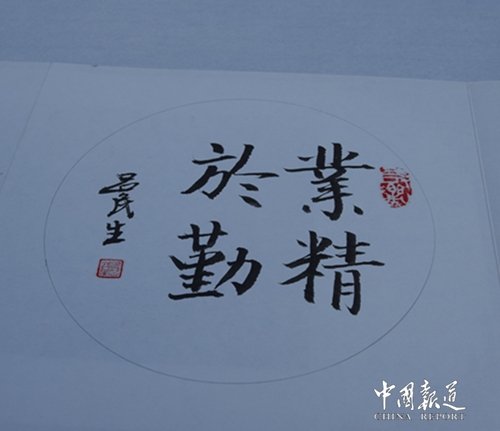 業精
於勤
呂民生
中國報道
CHINA REPORT